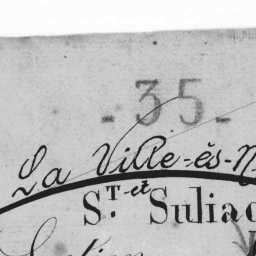 -35-
La Ville-ès-N
S.T et Suliac